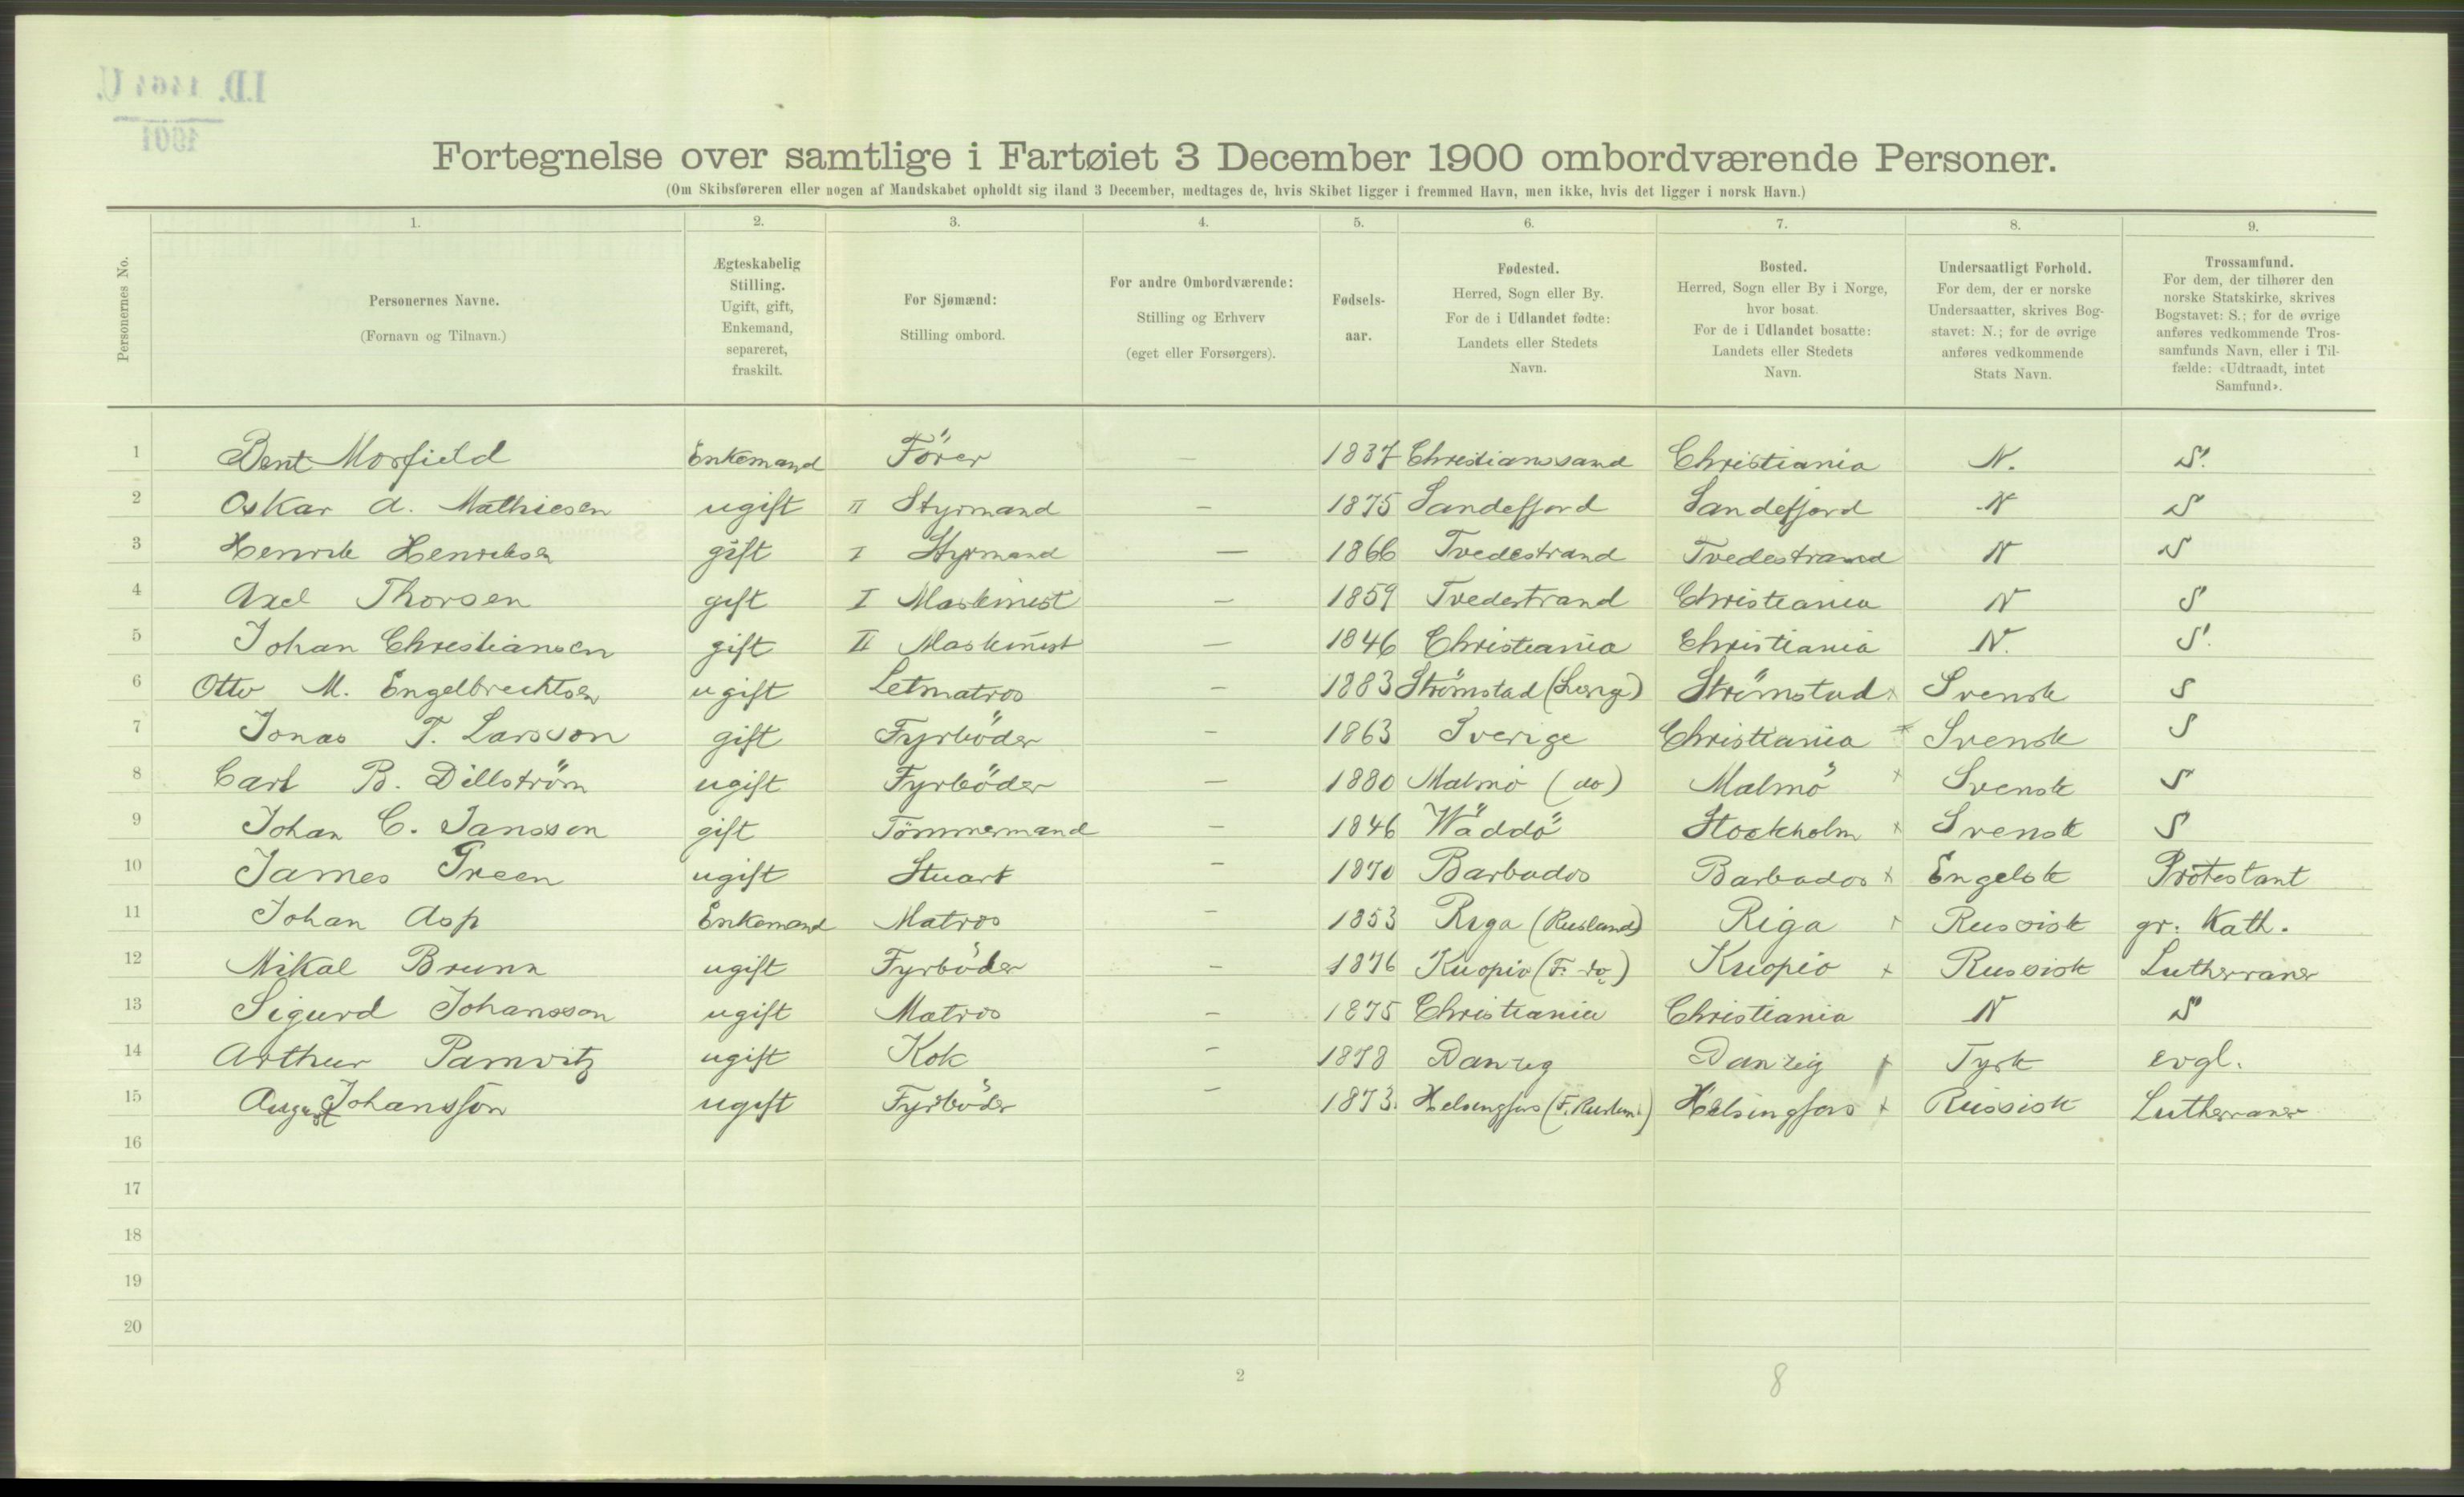 I.D. 1464 U.
1901
Fortegnelse over samtlige i Fartøiet 3 December 1900 ombordværende Personer.
(Om Skibsføreren eller nogen af Mandskabet opholdt sig iland 3 December, medtages de, hvis Skibet ligger i fremmed Havn, men ikke, hvis det ligger i norsk Havn.)
Personernes No.
1. 2. 3. 4. 5. 6. 7. 8. 9.
Personernes Navne.
(Fornavn og Tilnavn.)
Ægteskabelig
Stilling.
Ugift, gift,
Enkemand,
separeret,
fraskilt.
For Sjømænd:
Stilling ombord.
For andre Ombordværende:
Stilling og Erhverv
(eget eller Forsørgers).
Fødsels-
aar.
Fødested.
Herred, Sogn eller By.
For de i Udlandet fødte:
Landets eller Stedets
Navn.
Bosted.
Herred, Sogn eller By i Norge,
hvor bosat.
For de i Udlandet bosatte:
Landets eller Stedets
Navn.
Undersaatligt Forhold.
For dem, der er norske
Undersaatter, skrives Bog-
stavet: N.; for de øvrige
anføres vedkommende
Stats Navn.
Trossamfund.
For dem, der tilhører den
norske Statskirke, skrives
Bogstavet: S.; for de øvrige
anføres vedkommende Tros-
samfunds Navn, eller i Til-
fælde: «Udtraadt, intet
Samfund».
1 Bent Morfield Enkemand Förer — 1837 Christianssand Christiania N. S.
2 Oskar A. Mathiesen ugift II Styrmand — 1875 Sandefjord Sandefjord N S
3 Henrik Henriksen gift I Styrmand — 1866 Tvedestrand Tvedestrand N S
4 Axel Thorsen gift I Maskinist — 1859 Tvedestrand Christiania N S
5 Johan Christiansen gift II Maskinist — 1846 Christiania Christiania N. S.
6 Otto M. Engelbrecktsen ugift Letmatros — 1883 Strömstad Strömstad x Svensk S
7 Jonas T. Larsson gift Fyrböder — 1863 Sverige Christiania x Svensk S
8 Carl B. Dillström ugift Fyrböder — 1880 Malmö (do) Malmö x Svensk S
9 Johan C. Jansson gift Tömmermand — 1846 Wäddö Stockholm x Svensk S
10 James Green ugift Stuart — 1870 Barbados Barbados x Engelsk Protestant
11 Johan Asp Enkemand Matros — 1853 Riga (Rusland) Riga x Russisk gr. Kath.
12 Mikal Brunn ugift Fyrböder — 1876 Kuopio (F. do) Kuopio x Russisk Lutherraner
13 Sigurd Johansson ugift Matros — 1875 Christiania Christiania N S
14 Arthur Pamvitz ugift Kok — 1878 Danzig Danzig x Tysk evgl.
15 August Johansson ugift Fyrböder — 1873. Helsingfors (F. Rusland) Helsingfors x Russisk Lutherraner
16
17
18
19
20
2
8